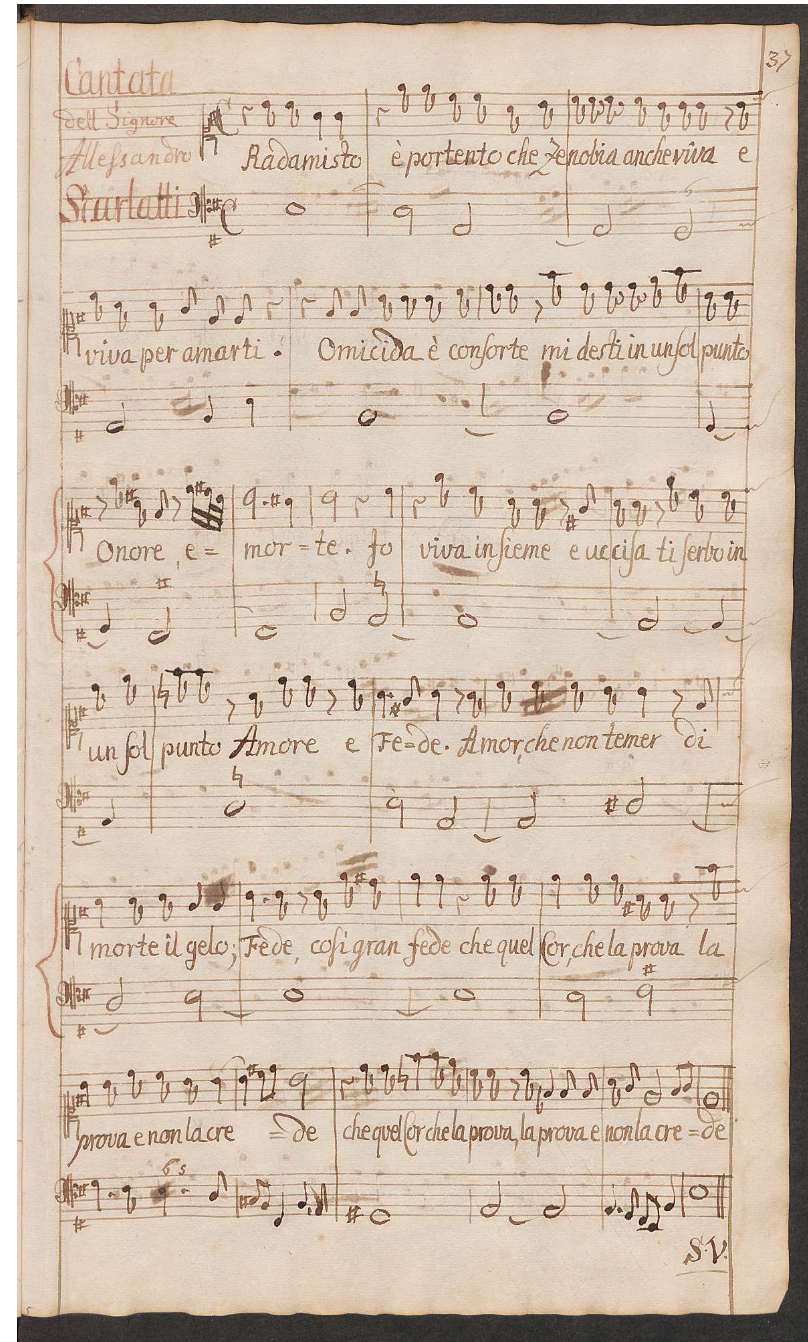 37
Cantata
dell Signore
Allessandro
Scarlatti
Radamisto è portento che Zenobia anche viva e
viva per amarti. Omicida è consorte mi desti in un sol punto
Onore, e= mor=te. Io viva insieme e uccisa ti serbo in
un sol punto Amore e Fe=de. Amor, che non temer di
morte il gelo; Fede, cosi gran fede che quel Cor, che la prova la
prova e non la cre =de che quel Cor che la prova, la prova e non la cre=de
6 5
S.V.